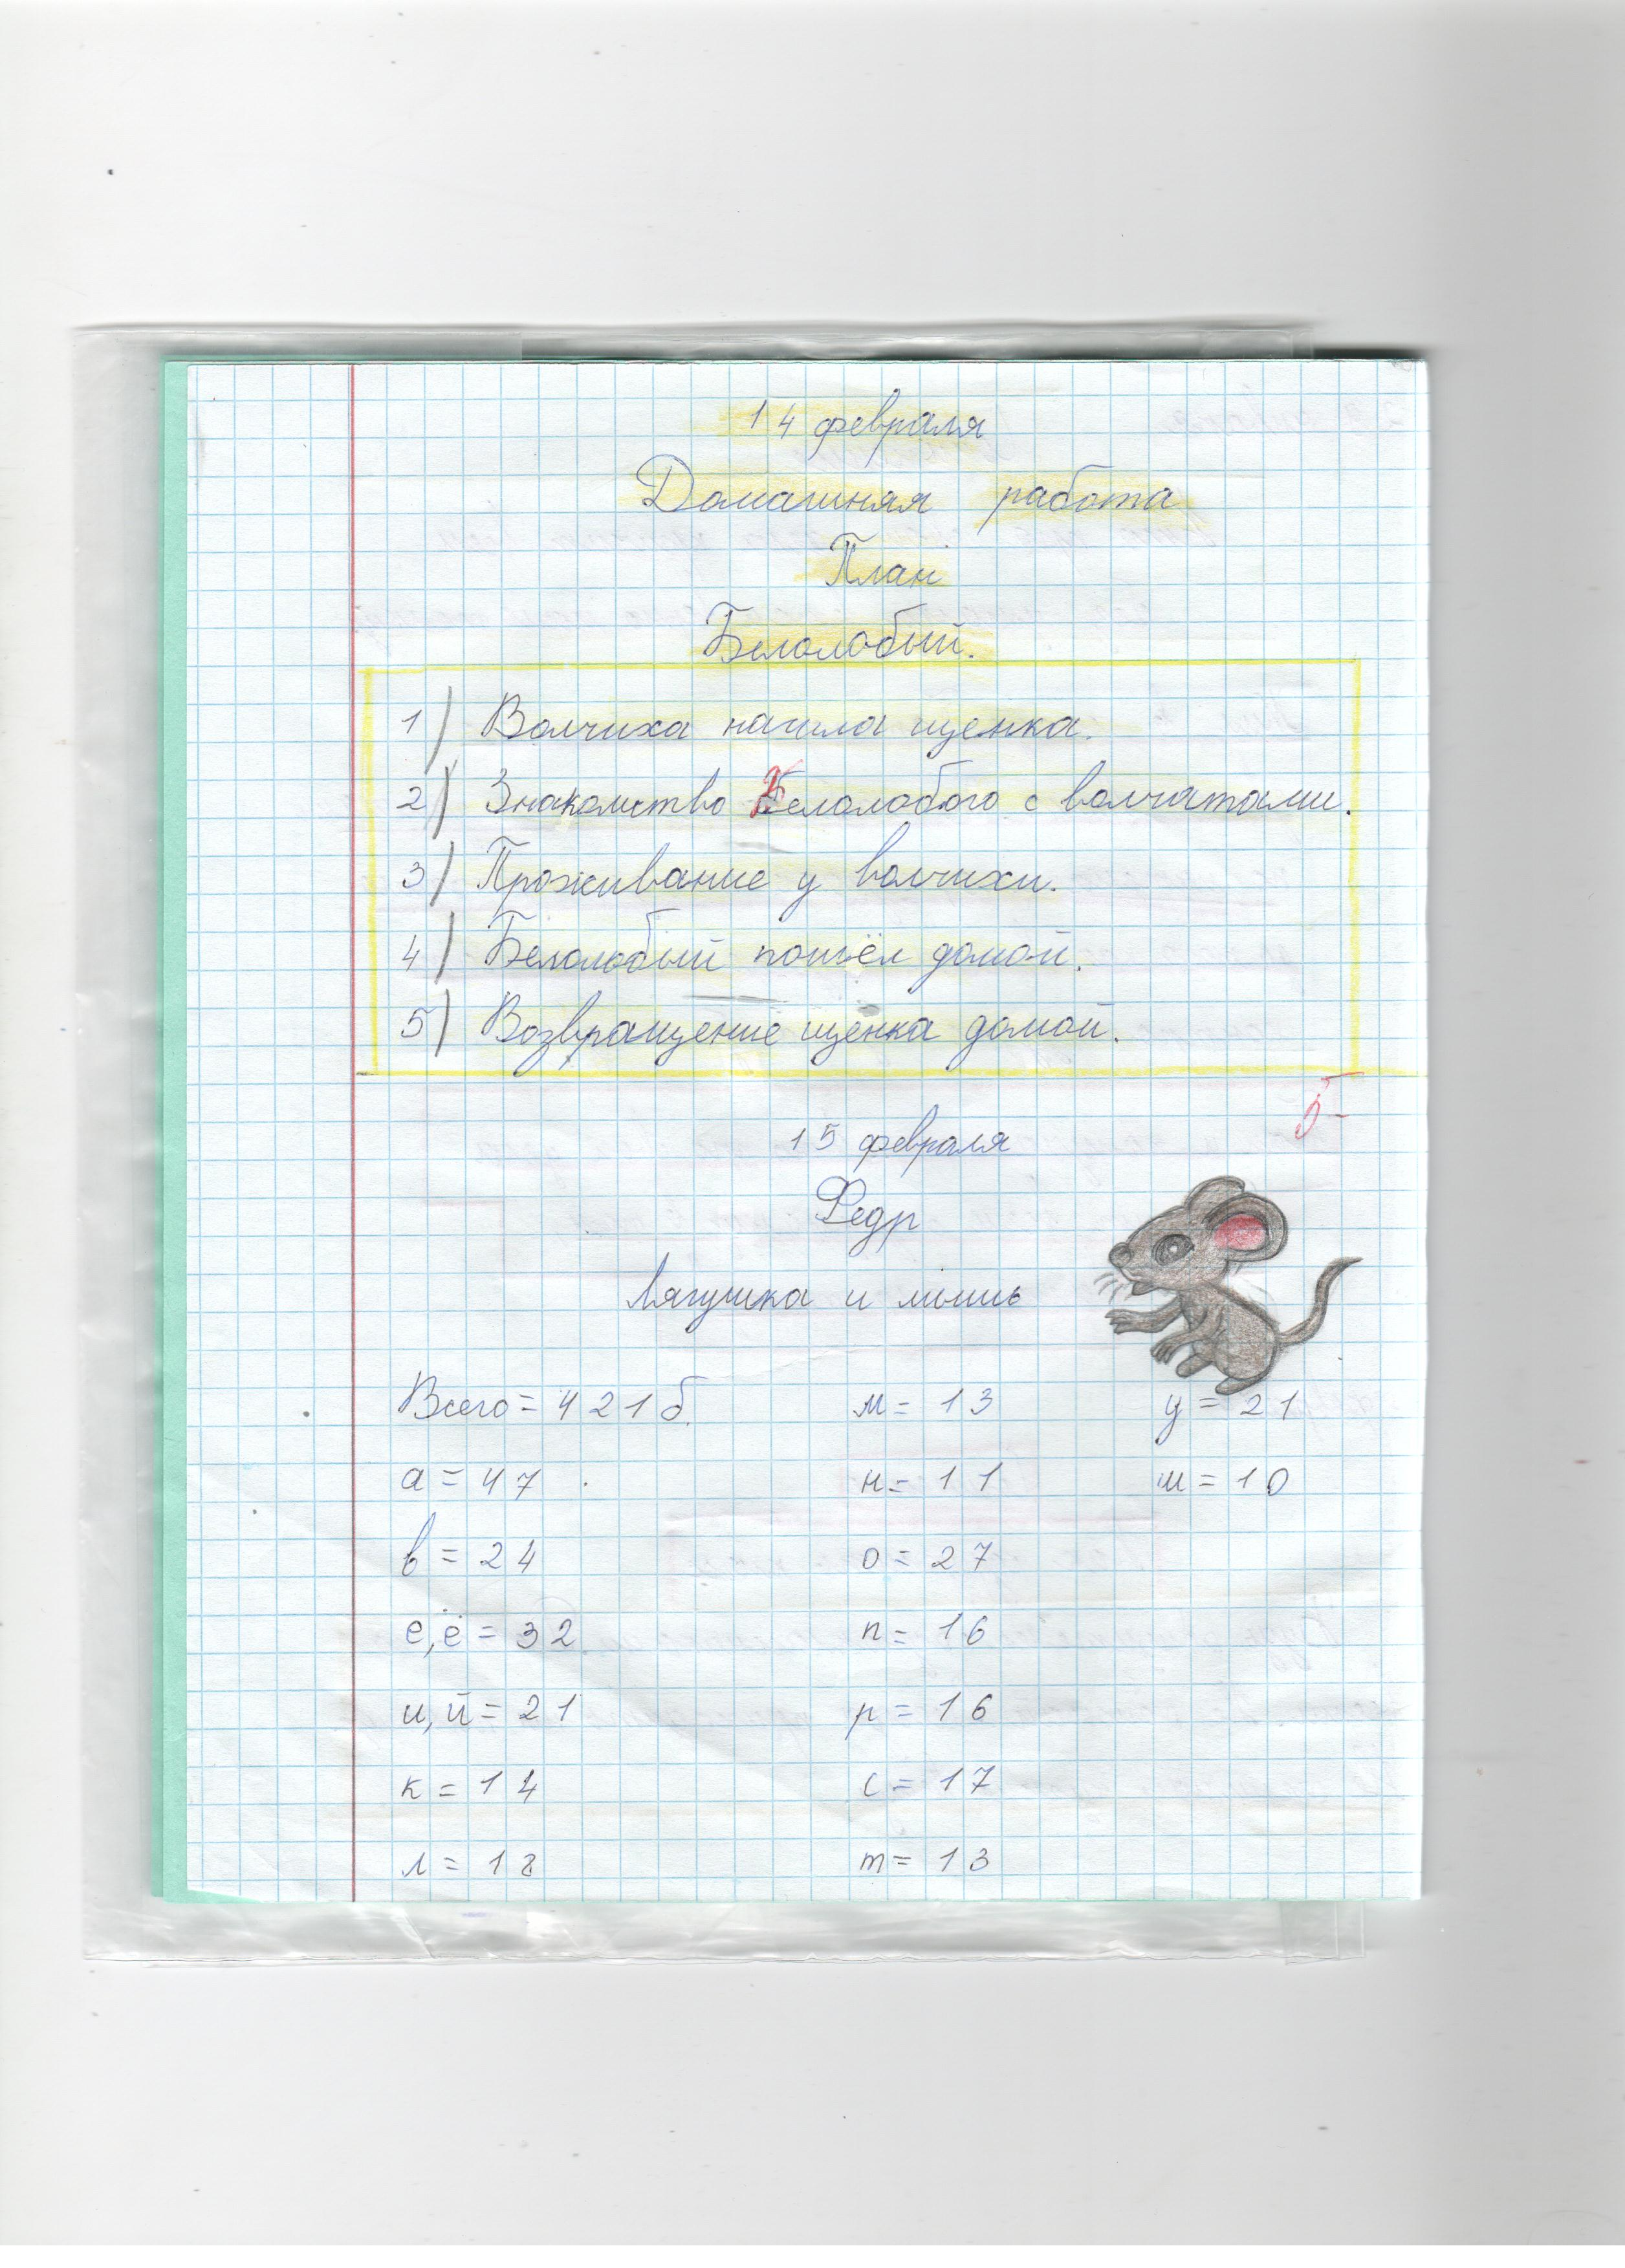 14 февраля
Домашняя работа
План
Белолобый.
1) Волчиха нашла щенка.
2) Знакомство Белолобого с волчатами.
3) Проживание у волчихи.
4) Белолобый пошёл домой.
5) Возвращение щенка домой.
5-
15 февраля
Федр
Лягушка и мышь
Всего = 421 б. м = 13 у = 21
а = 47 н = 11 ш = 10
в = 24 о = 27
е, ё = 32 п = 16
и, й = 21 р = 16
к = 14 с = 17
л = 18 т = 13